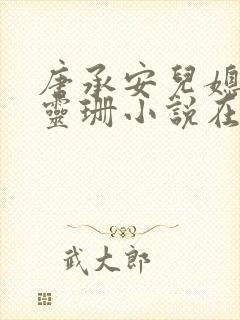 唐承安兒媳
靈珊小說在
武大郎